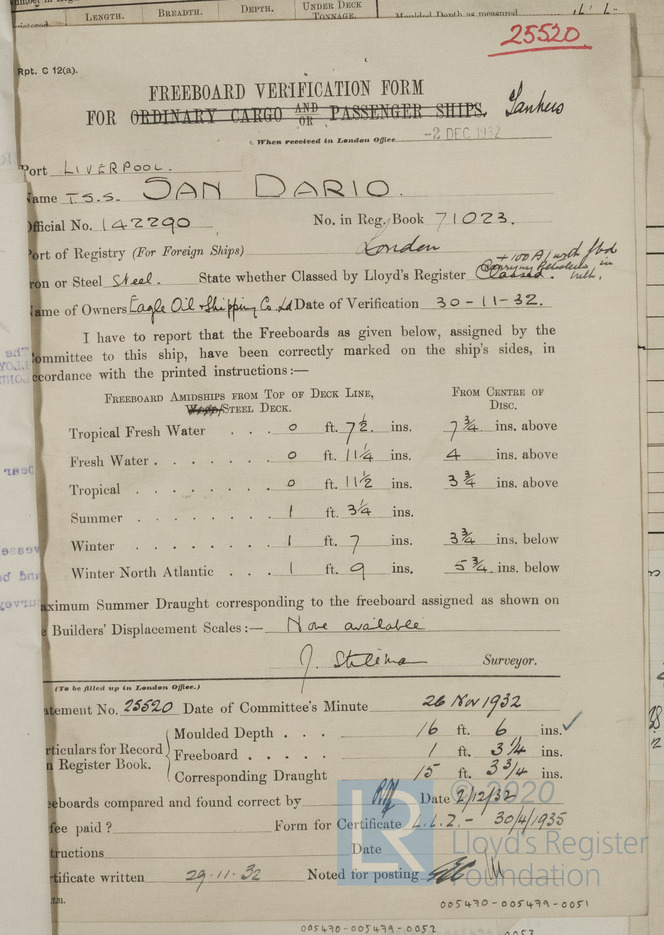 LENGTH. BREADTH. DEPTH. UNDER DECK TONNAGE. Moulded Depth as measured
25520
Rpt. C 12(a).
FREEBOARD VERIFICATION FORM
FOR ORDINARY CARGO AND OR PASSENGER SHIPS. Tankers
When received in London Office -2 DEC 1932
Port LIVERPOOL.
Name T.S.S. SAN DARIO.
Official No. 142290 No. in Reg. Book 71023.
Port of Registry (For Foreign Ships) London
+100A1 with fbd
carrying Petroleum in bulk.
Iron or Steel Steel. State whether Classed by Lloyd's Register Classed.
Name of Owners Eagle Oil & Shipping Co. Ld Date of Verification 30-11-32.
I have to report that the Freeboards as given below, assigned by the
Committee to this ship, have been correctly marked on the ship's sides, in
accordance with the printed instructions:—
FREEBOARD AMIDSHIPS FROM TOP OF DECK LINE, FROM CENTRE OF
Wood/STEEL DECK. DISC.
Tropical Fresh Water . . . 0 ft. 7½ ins. 7¾ ins. above
Fresh Water . . . . . . . 0 ft. 11¼ ins. 4 ins. above
Tropical . . . . . . . . 0 ft. 11½ ins. 3¾ ins. above
Summer . . . . . . . . 1 ft. 3¼ ins.
Winter . . . . . . . . 1 ft. 7 ins. 3¾ ins. below
Winter North Atlantic . . . 1 ft. 9 ins. 5¾ ins. below
aximum Summer Draught corresponding to the freeboard assigned as shown on
e Builders' Displacement Scales:— None available
Surveyor.
(To be filled up in London Office.)
atement No. 25520 Date of Committee's Minute 26 Nov 1932
Moulded Depth . . . 16 ft. 6 ins. ✓
rticulars for Record
Freeboard . . . . . 1 ft. 3¼ ins.
n Register Book.
Corresponding Draught 15 ft. 3¾ ins.
eeboards compared and found correct by Date 2/12/32
fee paid ? Form for Certificate L.L.2.- 30/4/1935
tructions Date
rtificate written 29.11.32 Noted for posting
© 2020
LR Lloyd's Register
Foundation
7.31.
005470-005479-0051
005470-005479-0052
0053